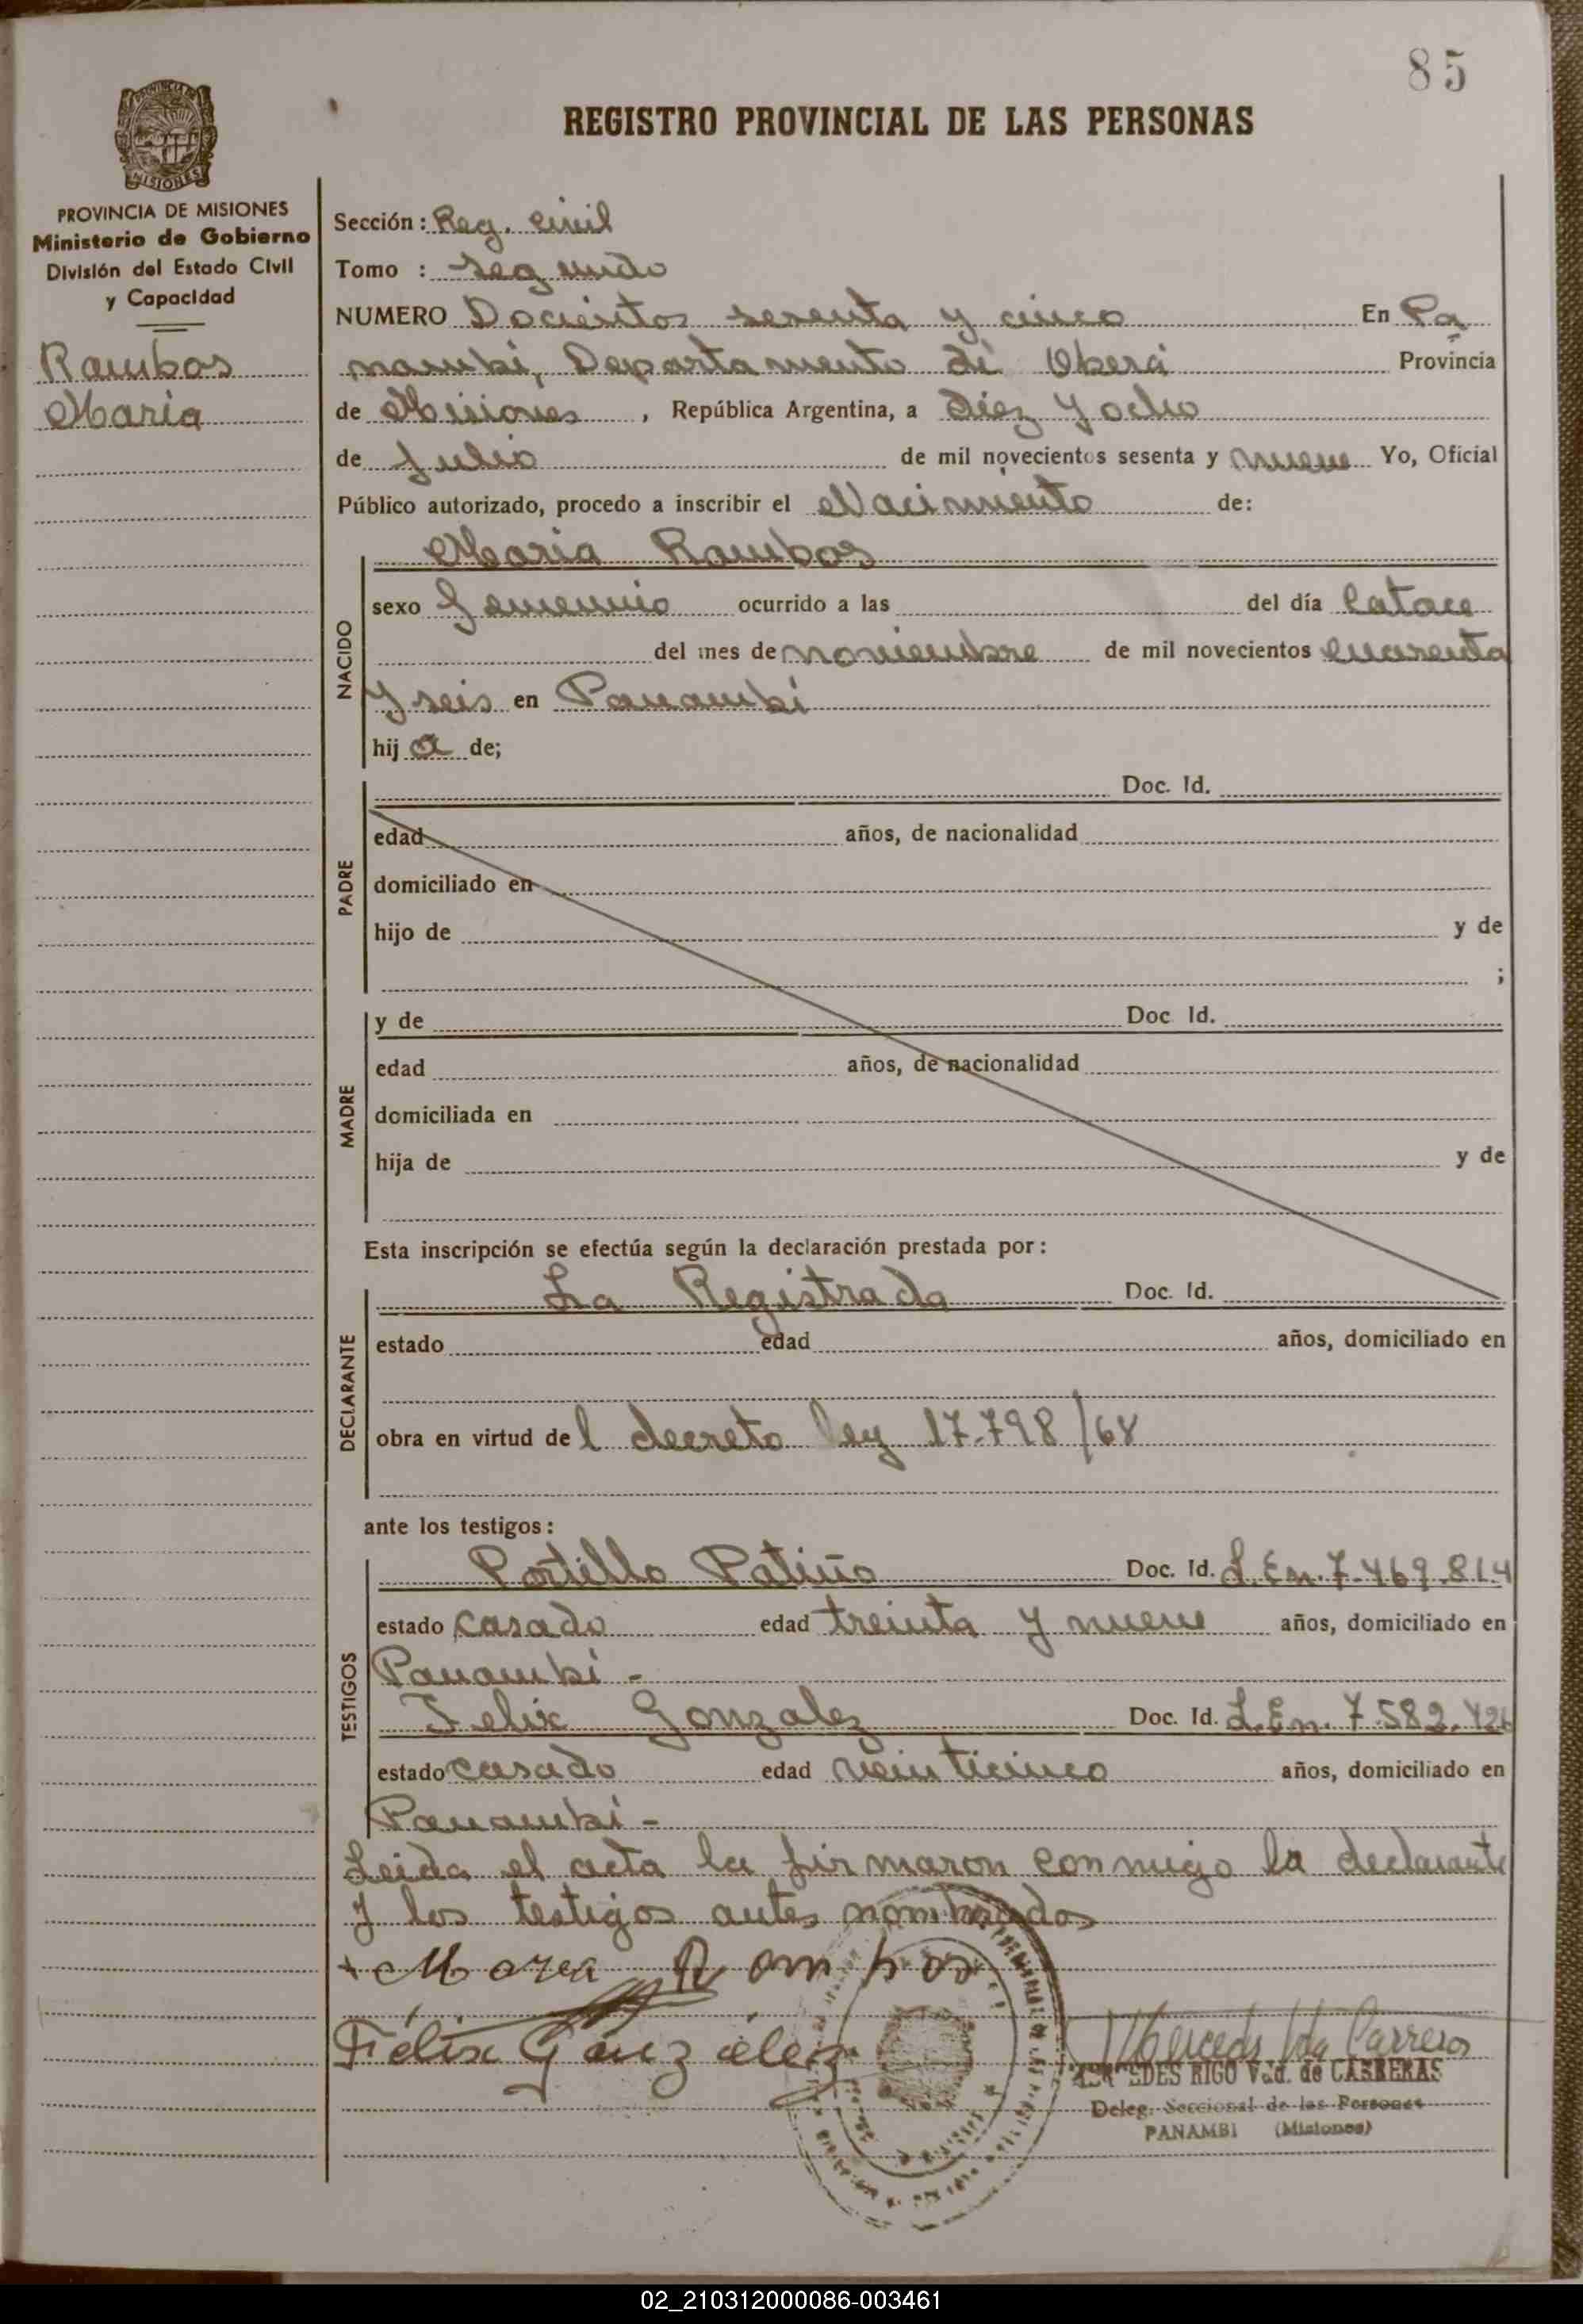 85
REGISTRO PROVINCIAL DE LAS PERSONAS
MISIONES
PROVINCIA DE MISIONES
Ministerio de Gobierno
División del Estado Civil
y Capacidad
Rambos
Maria
Sección: Reg. Civil
Tomo : Segundo
NUMERO Docientos sesenta y cinco En Pa
nambí, Departamento de Oberá Provincia
de Misiones, República Argentina, a diez y ocho
de Julio de mil novecientos sesenta y nueve Yo, Oficial
Público autorizado, procedo a inscribir el Nacimiento de:
Maria Rambos
NACIDO
sexo femenino ocurrido a las del día Catorce
del mes de noviembre de mil novecientos cuarenta
y seis en Panambí
hija de;
PADRE
Doc. Id.
edad años, de nacionalidad
domiciliado en
hijo de y de
;
MADRE
y de Doc Id.
edad años, de nacionalidad
domiciliada en
hija de y de
Esta inscripción se efectúa según la declaración prestada por:
DECLARANTE
La Registrada Doc. Id.
estado edad años, domiciliado en
obra en virtud del decreto ley 17.798/68
ante los testigos:
TESTIGOS
Portillo Patiño Doc. Id. L.En. 7.469.814
estado casado edad treinta y nueve años, domiciliado en
Panambí -
Felix Gonzalez Doc. Id. L.En. 7.582.426
estado casado edad veinticinco años, domiciliado en
Panambí -
Leida el acta la firmaron conmigo la declarante
y los testigos antes nombrados
+ Maria Rambos
Félix Gonzalez
RIGO Vda. de CARRERAS
Deleg. Seccional de las Personas
PANAMBI (Misiones)
02_210312000086-003461